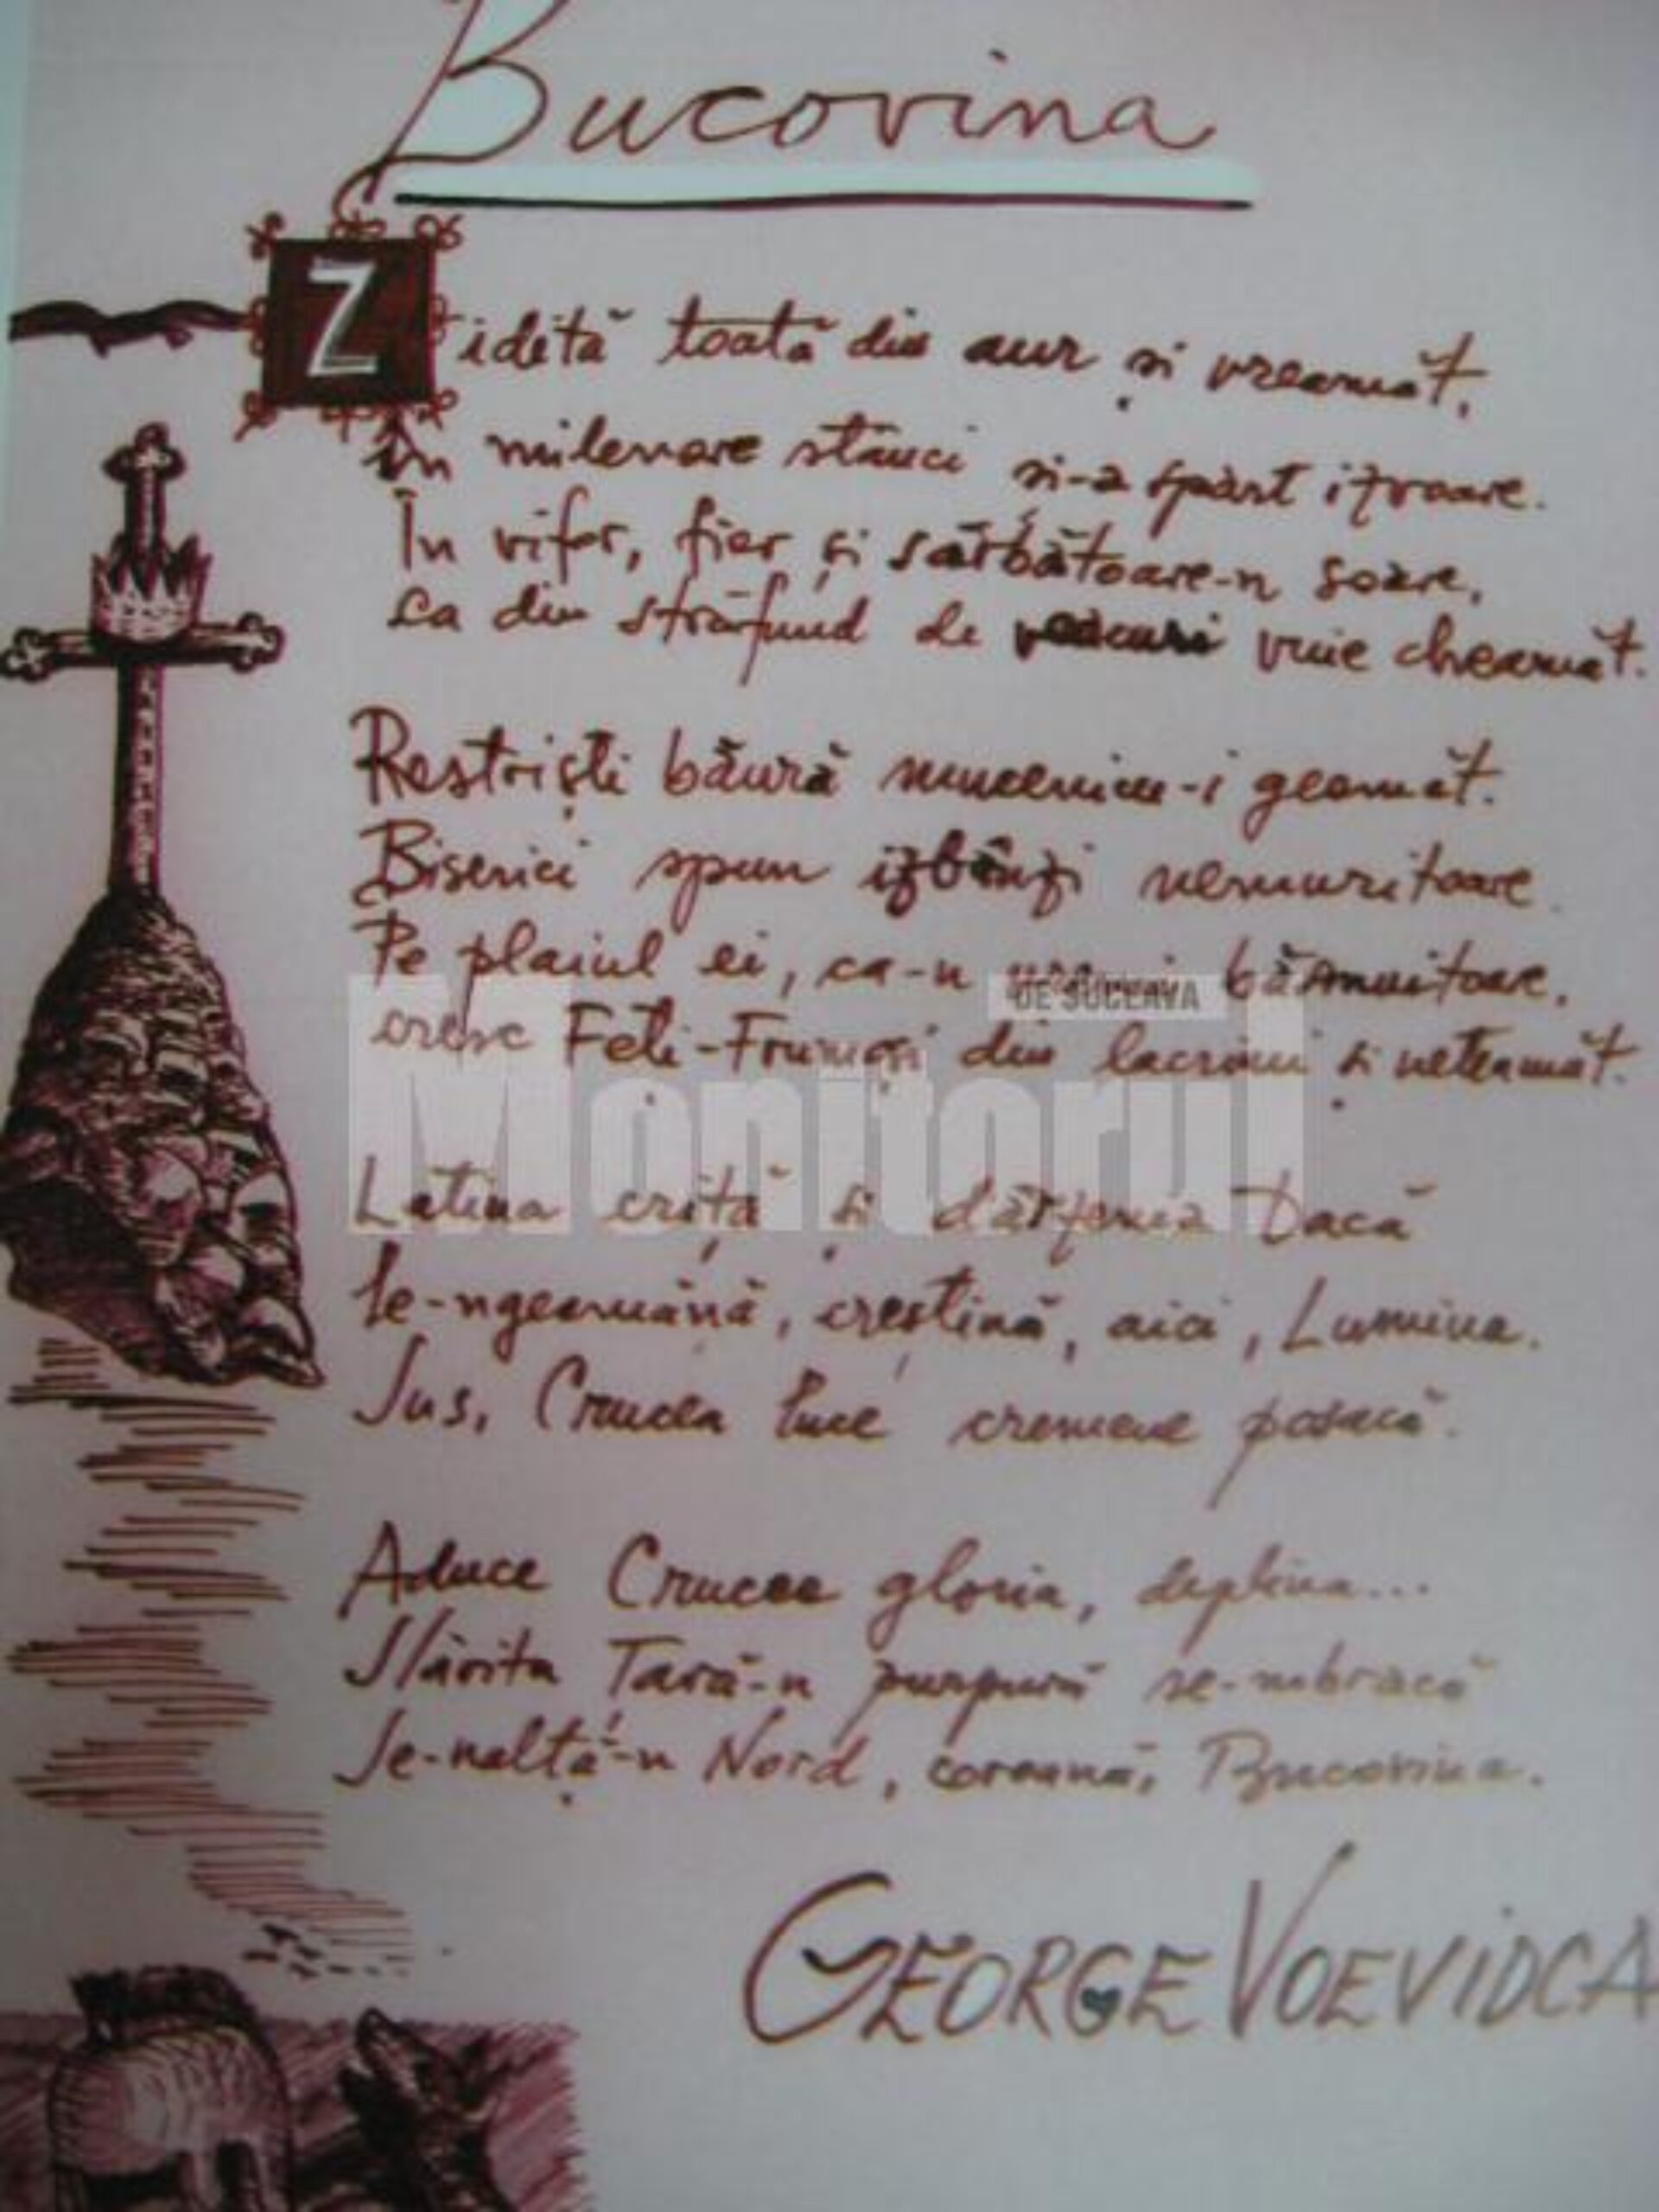 Bucovina
Zidită toată din aur și vreamăt,
În milenare stânci și-a spart izvoare.
În vifor, fier și sărbătoare-n soare,
Ca din străfund de veacuri vuie cheamăt.
Restriști băură mucenicu-i geamăt.
Biserici spun izbânzi nemuritoare.
Pe plaiul ei, ca-n băsmuitoare,
cresc Feți-Frumoși din lacrimi și neteamăt.
Latina criță și dârzenia Dacă
Se-ngeamănă, creștină, aici, Lumina.
Sus, Crucea cremene posacă.
Aduce Crucea gloria, deplina...
Slăvita Țară-n purpură se-mbracă
Se-nalță-n Nord, coroană, Bucovina.
GEORGE VOEVIDCA
Monitorul
DE SUCEAVA